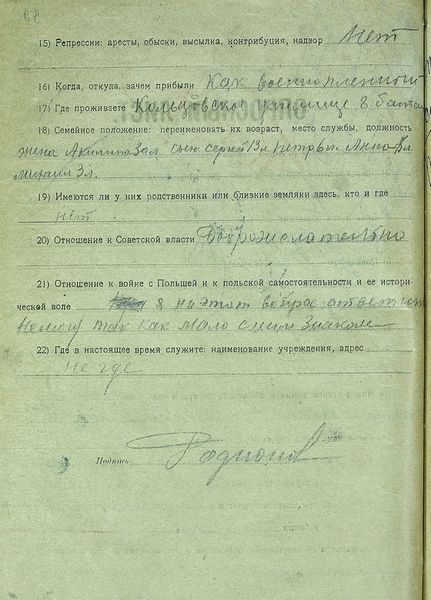 15) Репрессии: аресты, обыски, высылка, контрибуция, надвор Нет
16) Когда, откуда, зачем прибыли Как военнопленный
17) Где проживаете Кольцовское училище 8 бат
18) Семейное положение: переименовать их возраст, место службы, должность
жена Акилина 30л. сын сергей 13л Петр Анна
михаил 3л.
19) Имеются ли у них родственники или близкие земляки здесь, кто и где
нет
20) Отношение к Советской власти Доброжелательно
21) Отношение к войне с Польшей и к польской самостоятельности и ее истори-
ческой воле я на этот вопрос ответить
Немогу так как мало сним Знаком
22) Где в настоящее время служите: наименование учреждения, адрес
не где
Подпись Родионов